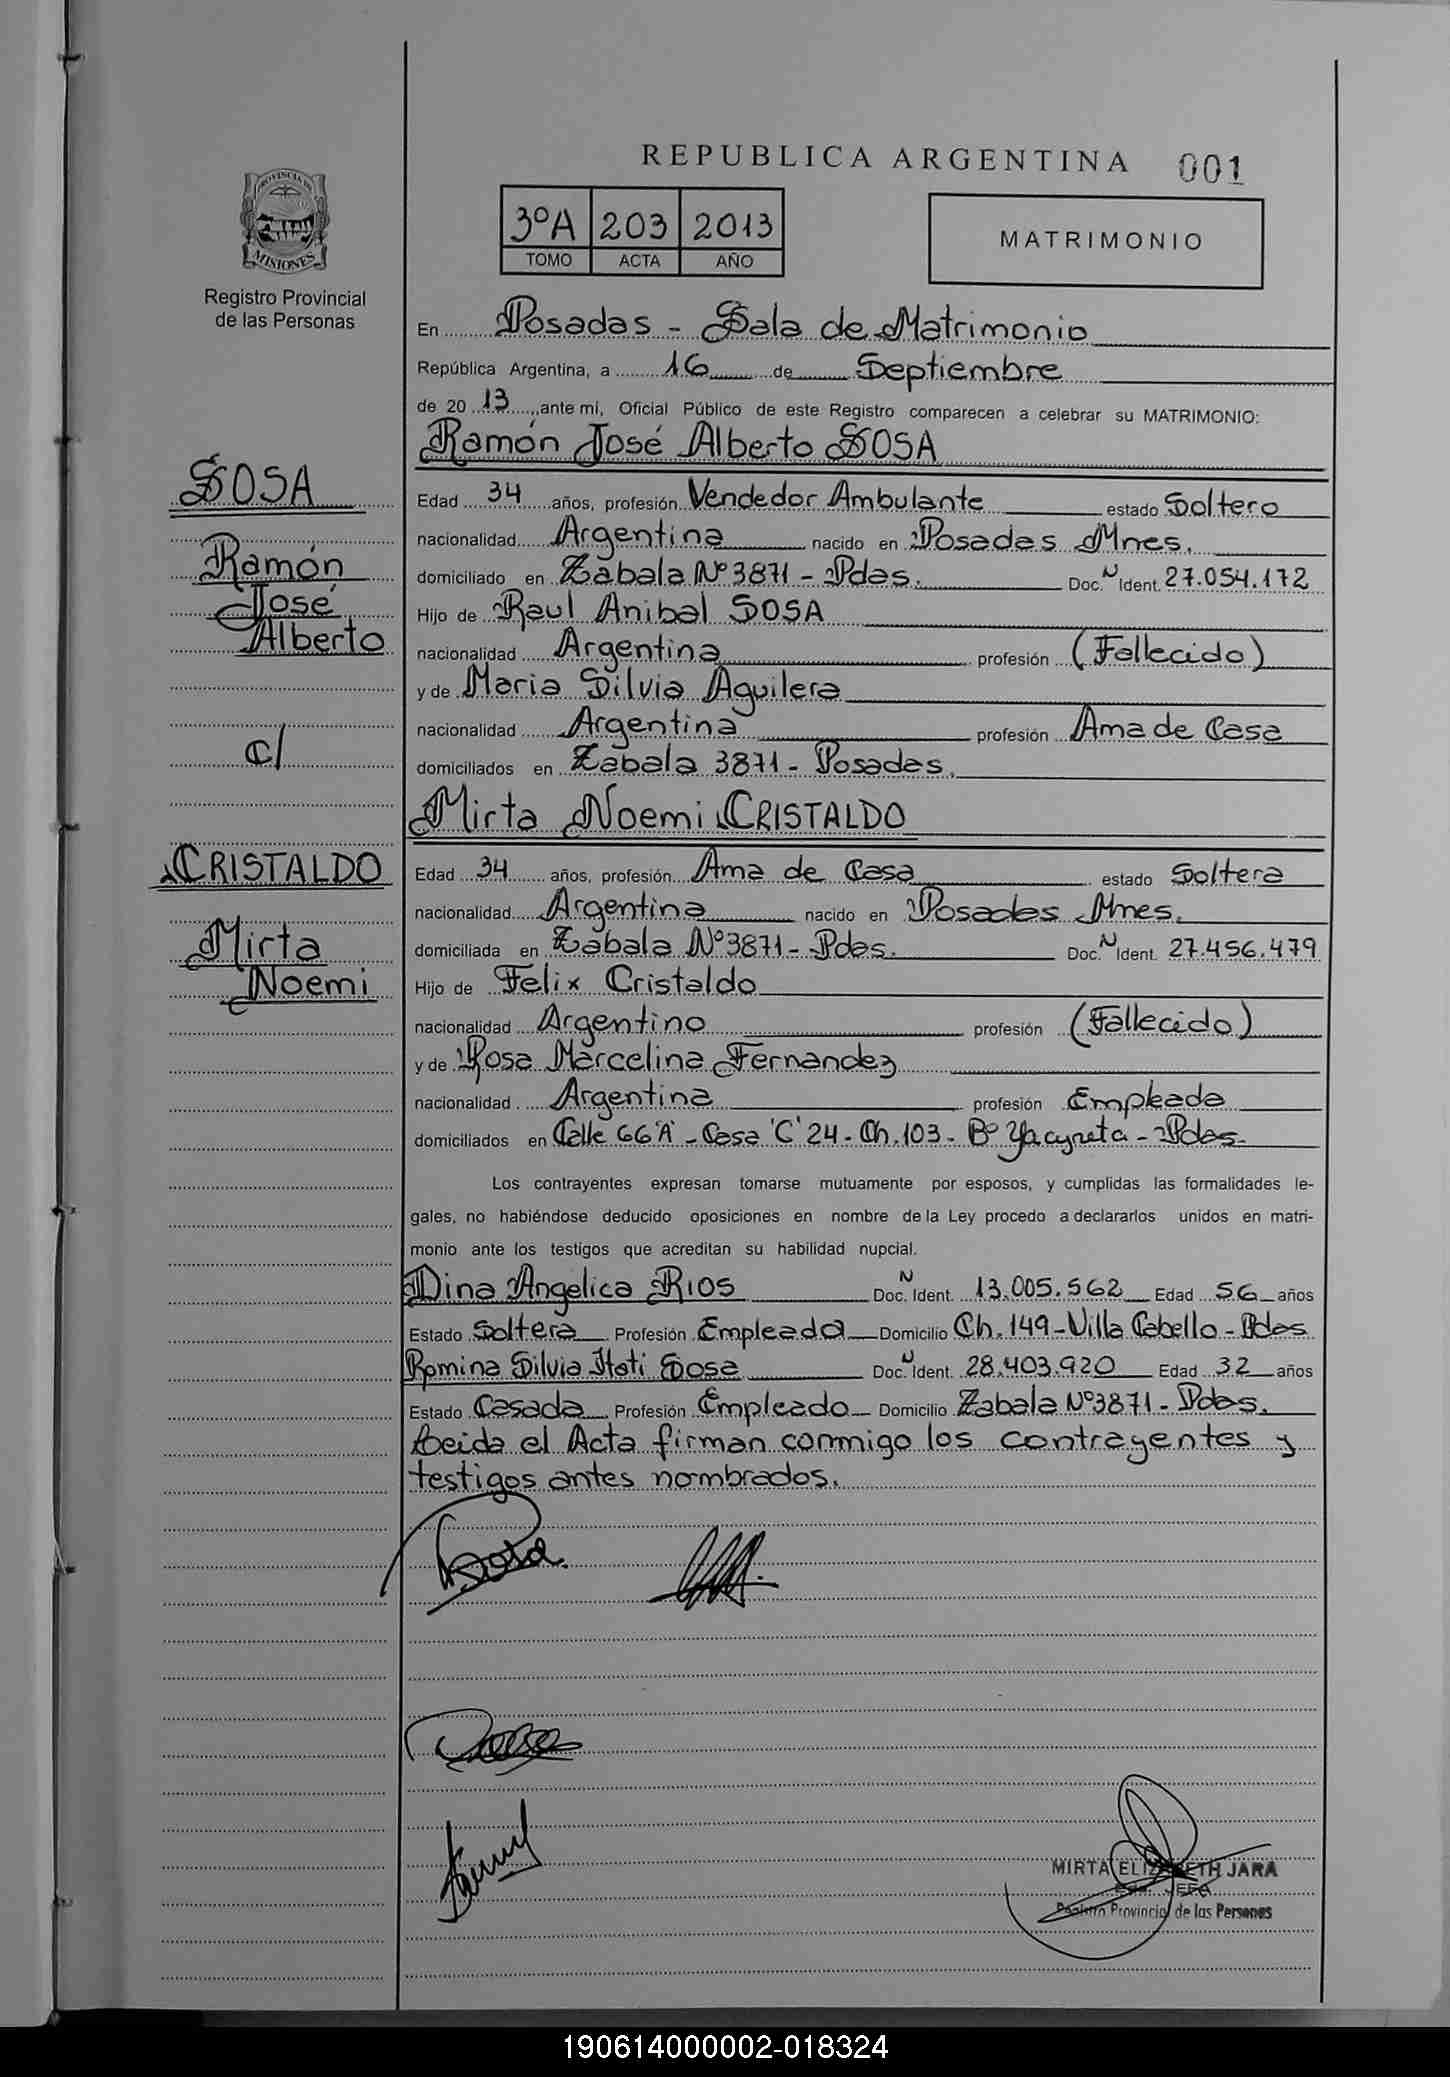 REPUBLICA ARGENTINA 001
PROVINCIA DE
MISIONES
Registro Provincial
de las Personas
3ºA 203 2013
TOMO ACTA AÑO
MATRIMONIO
En Posadas - Sala de Matrimonio
República Argentina, a 16 de Septiembre
de 20 13, ante mi, Oficial Público de este Registro comparecen a celebrar su MATRIMONIO:
Ramón José Alberto SOSA
SOSA
Ramón
José
Alberto
c/
CRISTALDO
Mirta
Noemi
Edad 34 años, profesión Vendedor Ambulante estado Soltero
nacionalidad Argentina nacido en Posadas Mnes.
domiciliado en Zabala Nº 3871 - Pdas. Doc. N Ident. 27.054.172
Hijo de Raul Anibal SOSA
nacionalidad Argentina profesión (Fallecido)
y de Maria Silvia Aguilera
nacionalidad Argentina profesión Ama de Casa
domiciliados en Zabala 3871 - Posadas.
Mirta Noemi CRISTALDO
Edad 34 años, profesión Ama de Casa estado Soltera
nacionalidad Argentina nacido en Posadas Mnes.
domiciliada en Zabala Nº 3871 - Pdas. Doc. N Ident. 27.456.479
Hijo de Felix Cristaldo
nacionalidad Argentino profesión (Fallecido)
y de Rosa Marcelina Fernandez
nacionalidad Argentina profesión Empleada
domiciliados en Calle 66 'A' - Casa 'C' 24 - Ch. 103 - Bº Yacyreta - Pdas.
Los contrayentes expresan tomarse mutuamente por esposos, y cumplidas las formalidades le-
gales, no habiéndose deducido oposiciones en nombre de la Ley procedo a declararlos unidos en matri-
monio ante los testigos que acreditan su habilidad nupcial.
Dina Angelica RIOS Doc. N Ident. 13.005.562 Edad 56 años
Estado Soltera Profesión Empleada Domicilio Ch. 149 - Villa Cabello - Pdas
Romina Silvia Itati Sosa Doc. N Ident. 28.403.920 Edad 32 años
Estado Casada Profesión Empleado Domicilio Zabala Nº 3871 - Pdas.
Leida el Acta firman conmigo los contrayentes y
testigos antes nombrados.
Sosa
MIRTA ELIZABETH JARA
JEFA
Registro Provincial de las Personas
190614000002-018324